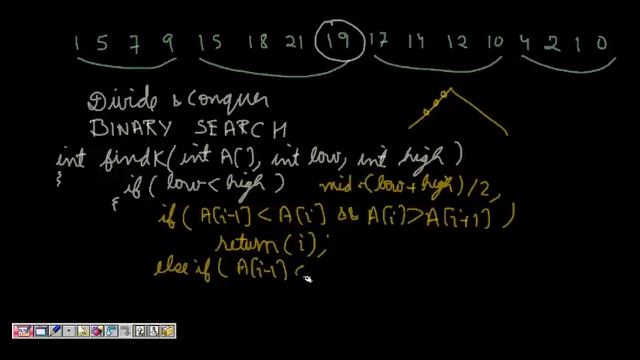 1 5 7 9 15 18 21 19 17 14 12 10 4 2 1 0
Divide & Conquer
BINARY SEARCH
int findK( int A[], int low, int high )
{ if ( low < high ) mid = (low + high) / 2,
{ if ( A[i-1] < A[i] && A[i] > A[i+1] )
return (i);
else if ( A[i-1] <